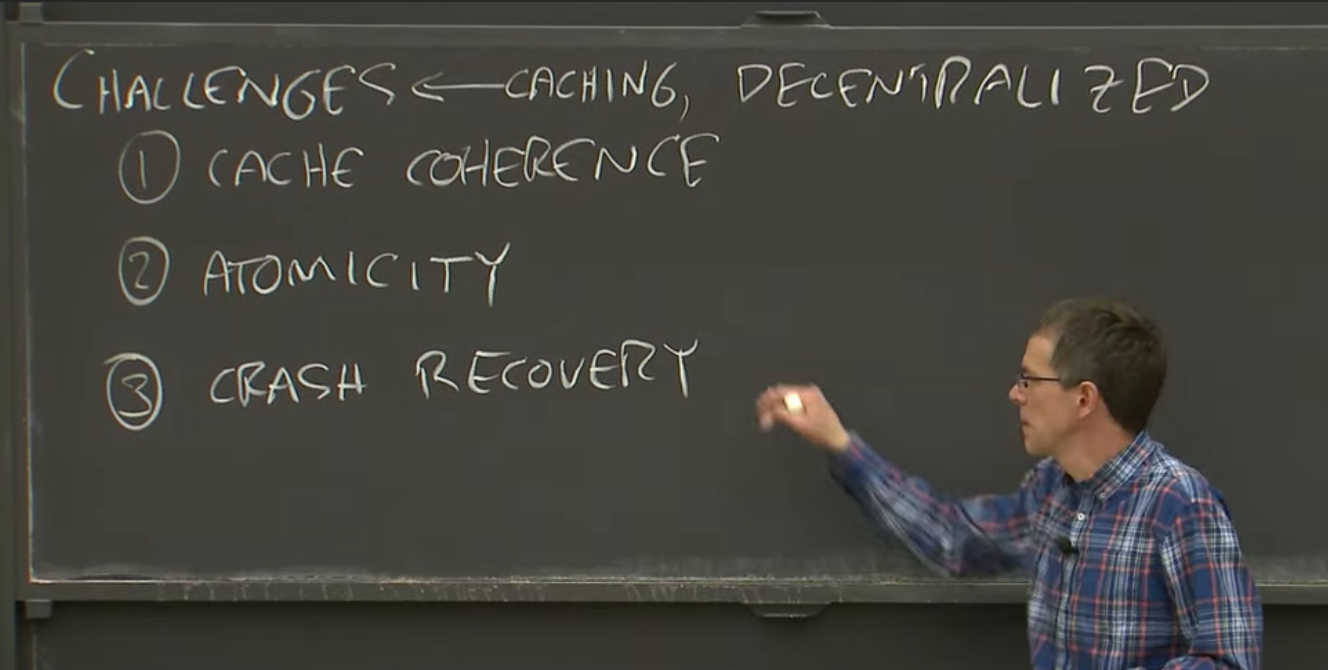 CHALLENGES ← CACHING, DECENTRALIZED
① CACHE COHERENCE
② ATOMICITY
③ CRASH RECOVERY